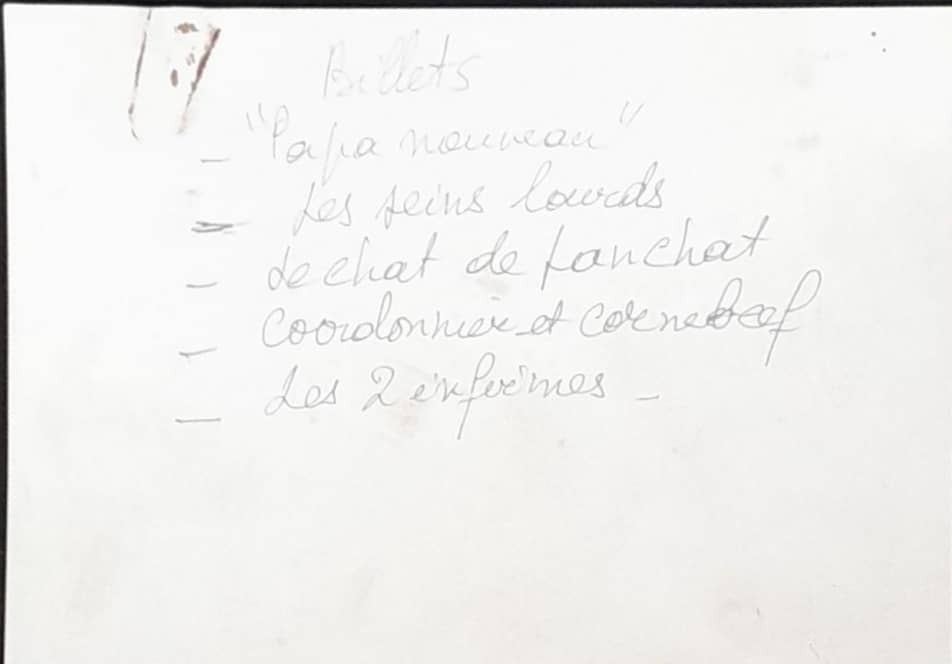 Billets
_ "Papa nouveau"
= Les seins lourds
_ Le chat de Fanchat
_ Coordonnier et Cornebeef
_ Les 2 infirmes _